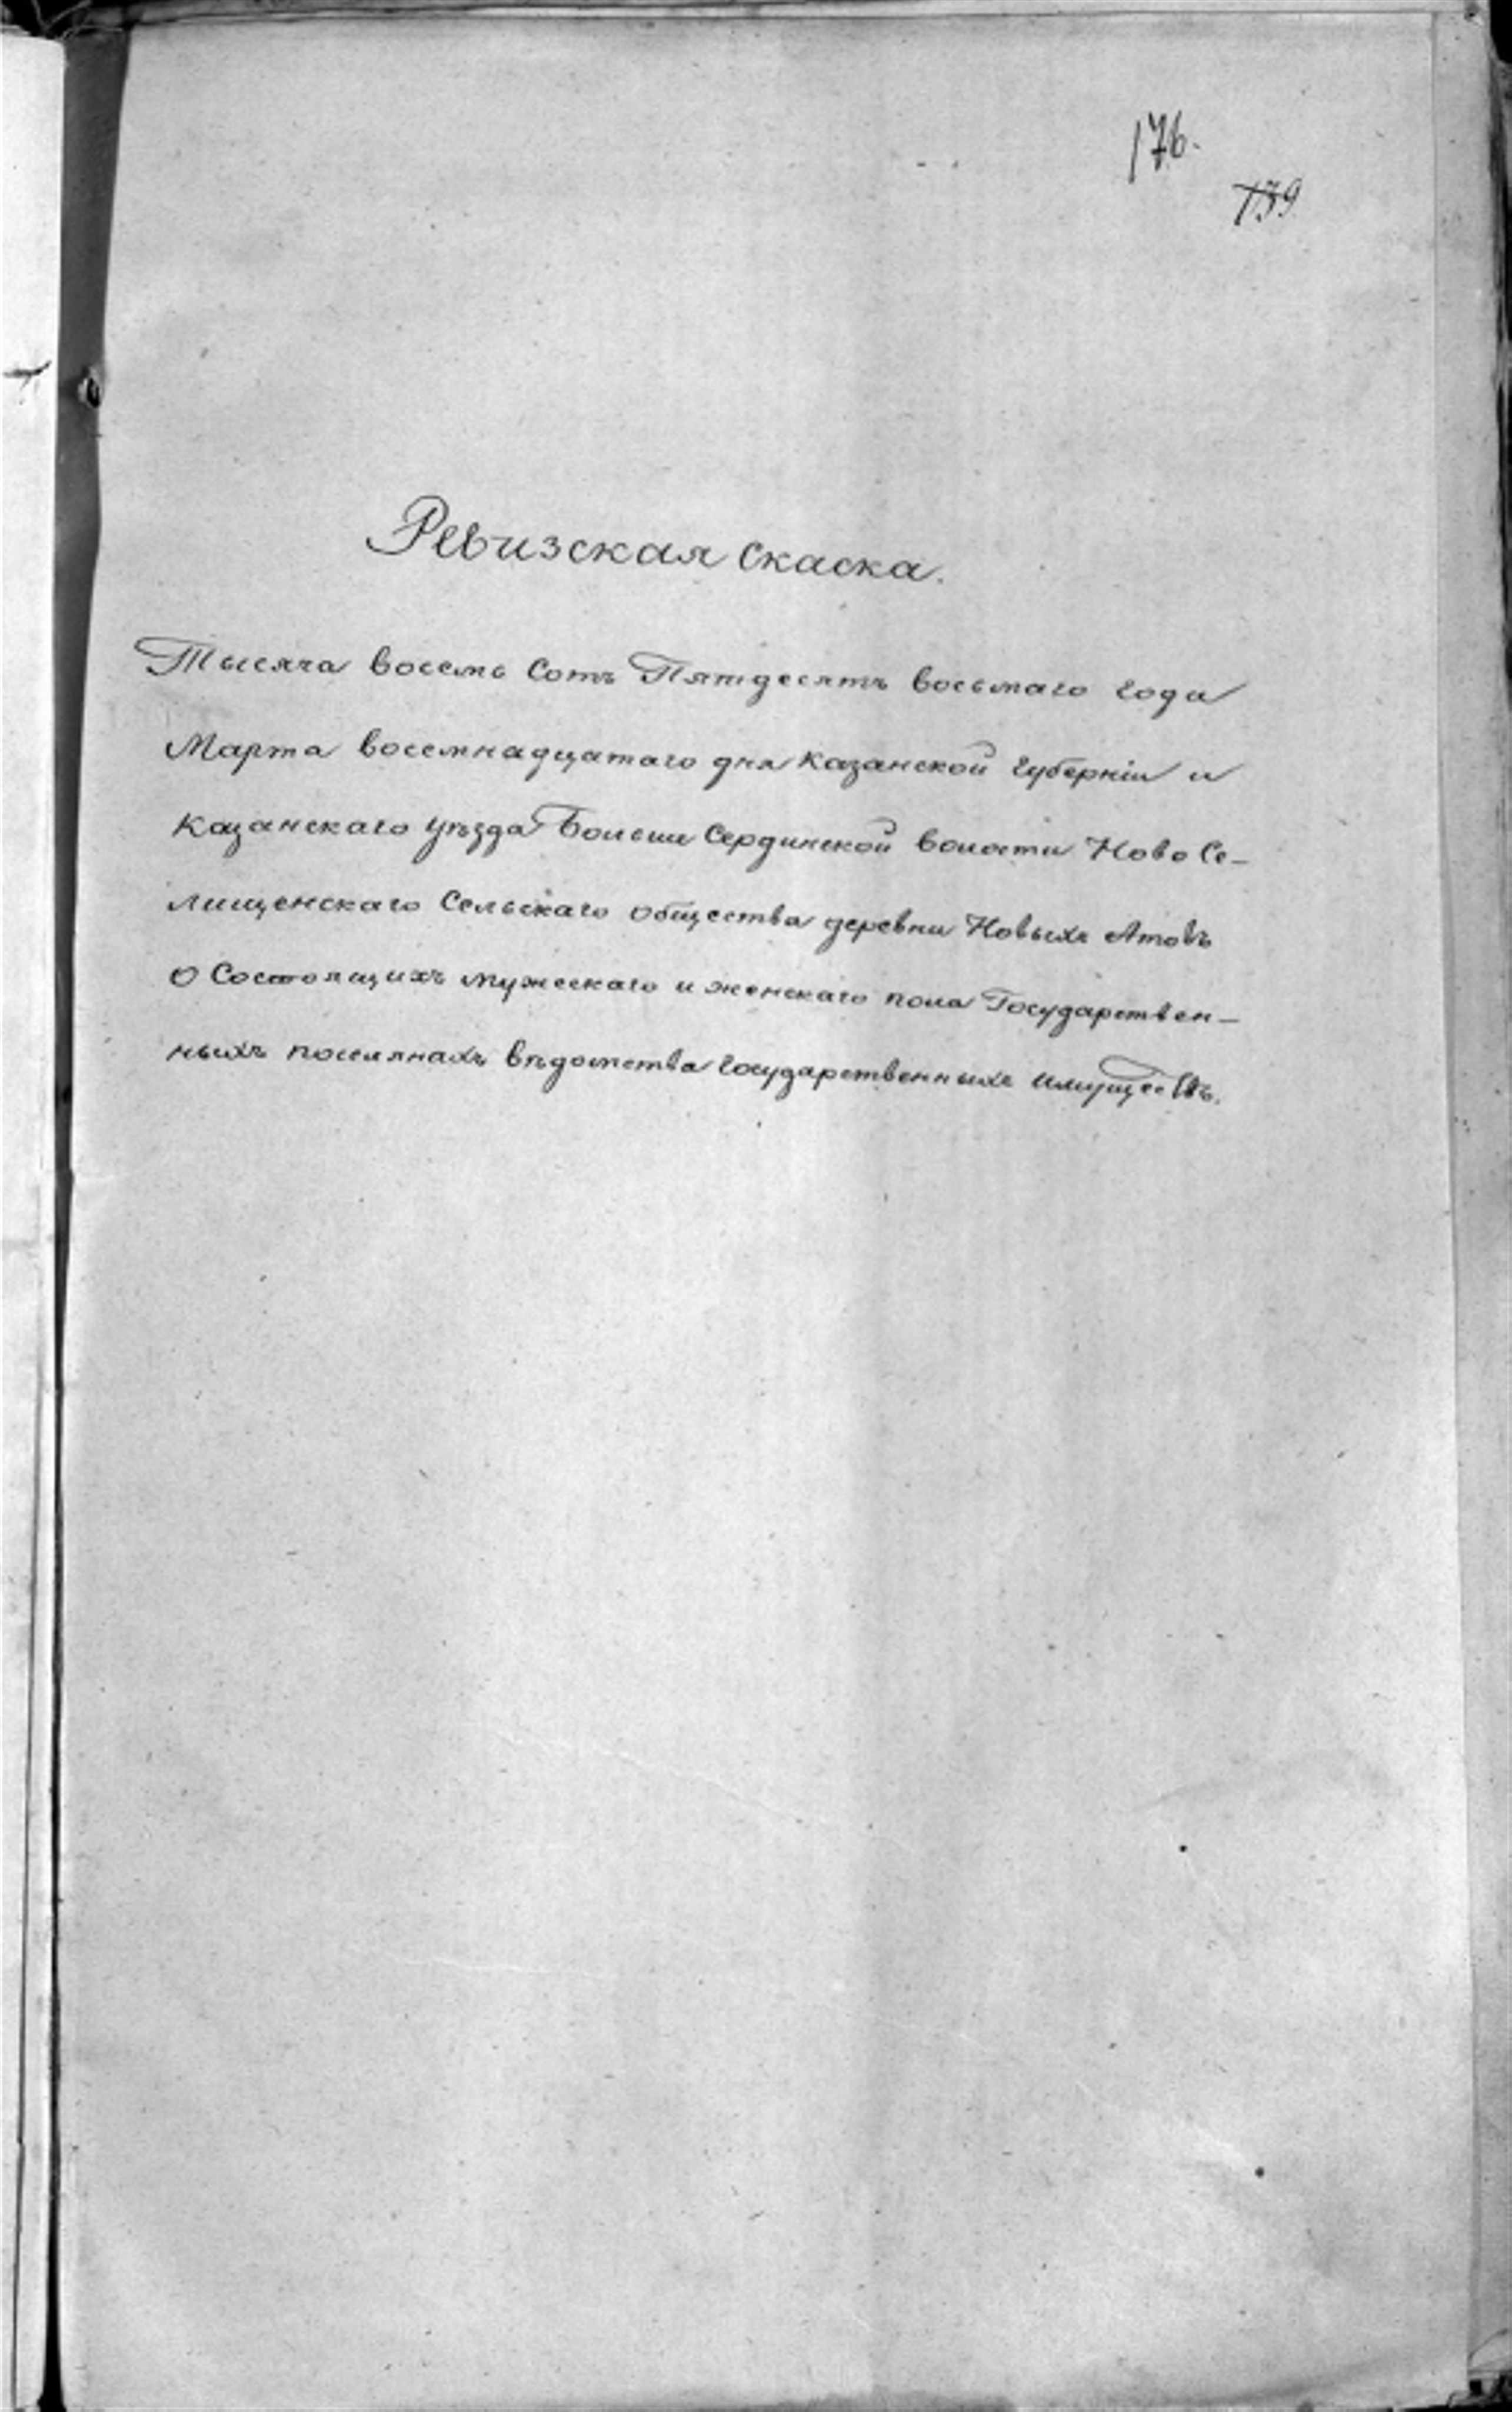 176.
139
Ревизская скаска.
Тысяча восемь сотъ Пятдесятъ восьмаго года
Марта восемнадцатаго дня Казанской губерніи и
Казанскаго уѣзда Больше Сердинской волости Ново Се-
лищенскаго Сельскаго общества деревни Новыхъ Атовъ
о Состоящихъ мужескаго и женскаго пола Государствен-
ныхъ поселянахъ вѣдомства государственныхъ имуществъ.